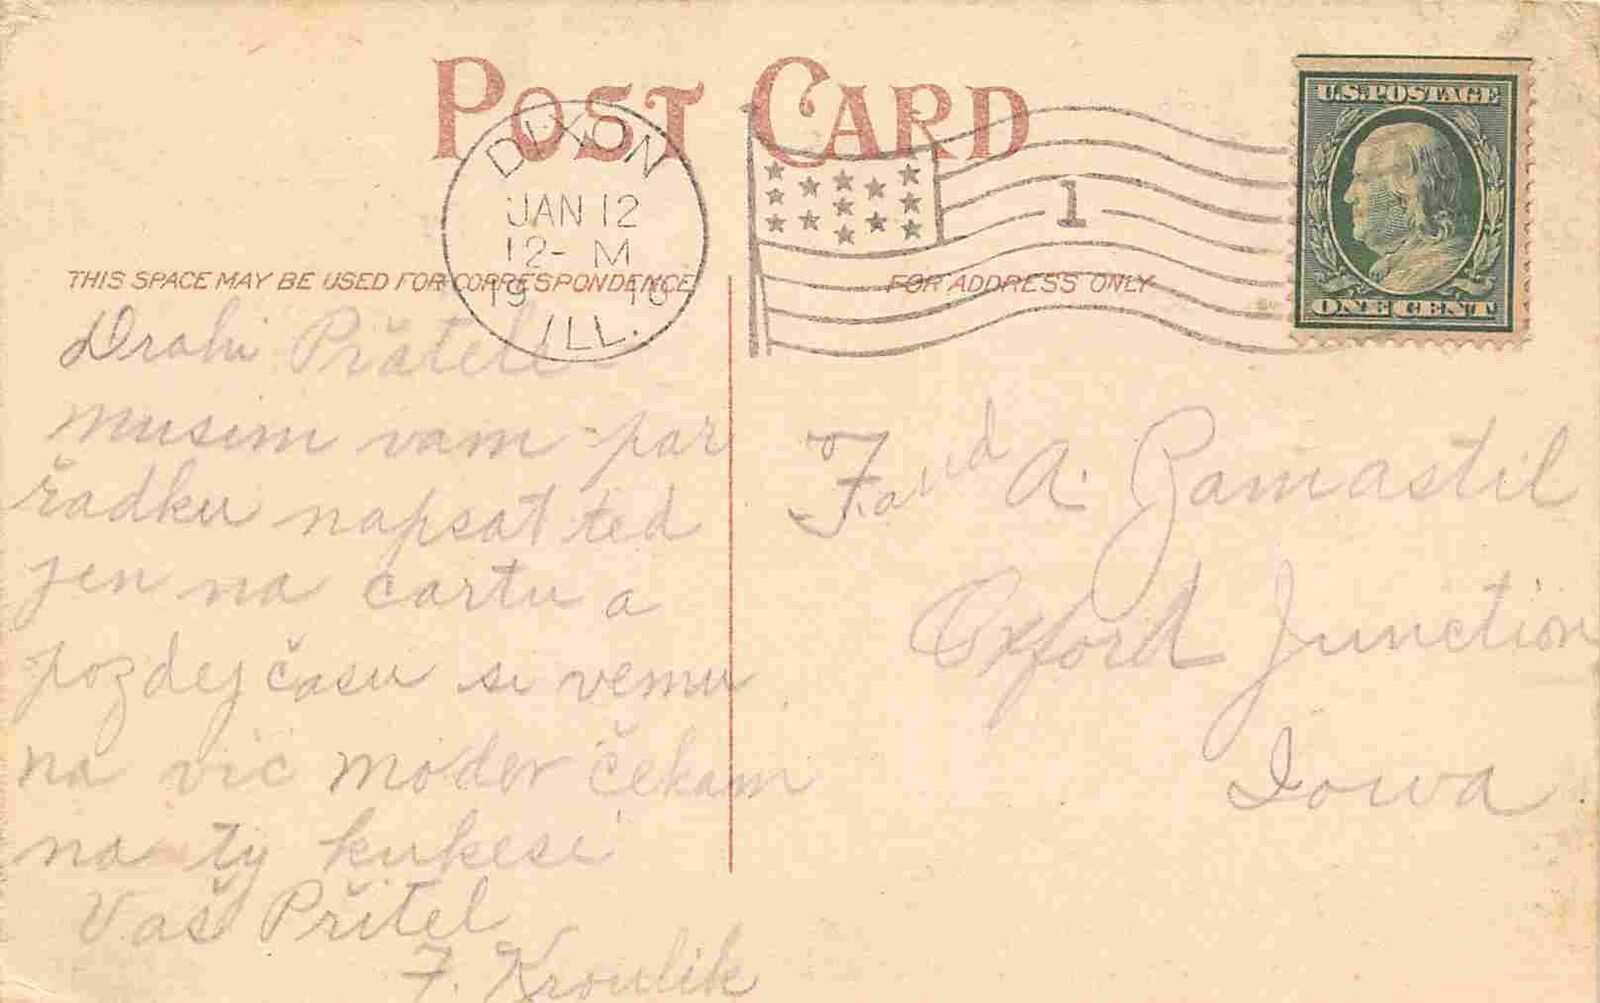 POST CARD
DIXON
JAN 12
12- M
19 10
ILL.
1
U.S. POSTAGE
ONE CENT
THIS SPACE MAY BE USED FOR CORRESPONDENCE
FOR ADDRESS ONLY
Drahi Přateli
musim vam par
řadku napsat ted
jen na cartu a
pozdej času si vemu
na vic moder čekam
na ty kukesi
Vaš Přitel
F. Kroulik
F. and A. Zamastil
Oxford Junction
Iowa